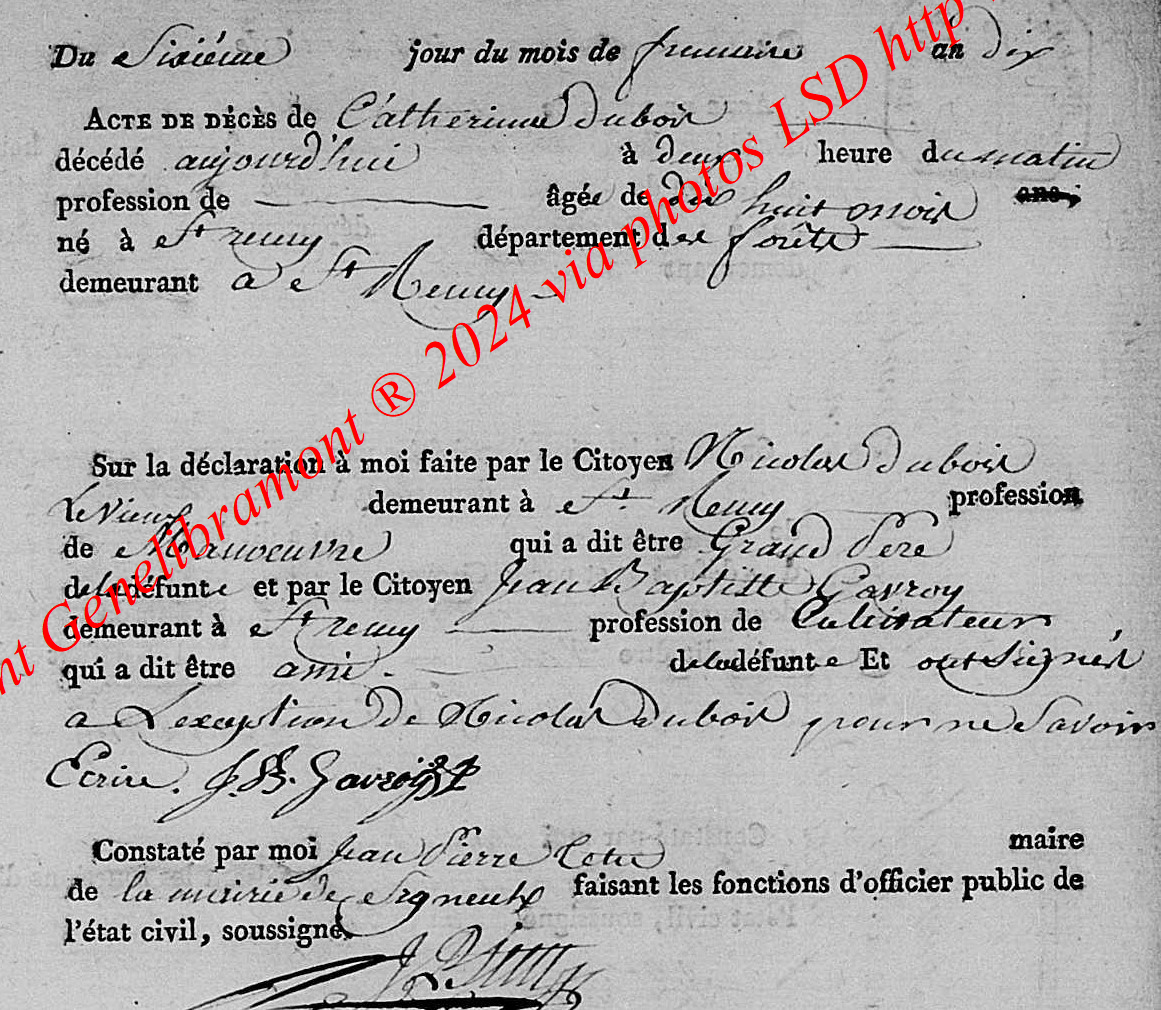 Du Sixiéme jour du mois de frimaire an dix
ACTE DE DÈCÈS de Cátherinne dubois
décédé aujourd'hui à deux heure du matin
profession de âgée de dix huit mois ans,
né à St remy département des forêts
demeurant a St Remy
Sur la déclaration à moi faite par le Citoyen Nicolas dubois
Le vieux demeurant à St. Remy profession
de Manoeuvre qui a dit être Grand Pere
de la défunte et par le Citoyen Jean Baptiste Gavroy
demeurant à St remy profession de Cultivateur,
qui a dit être ami. de la défunte Et ont Signés
a L'exception de Nicolas dubois pour ne Savoir
Ecrire. J. B. Gavroy
Constaté par moi Jean Pierre maire
de la mairie de Signeulx faisant les fonctions d'officier public de
l'état civil, soussigné.
nt Genelibramont ® 2024 via photos LSD http